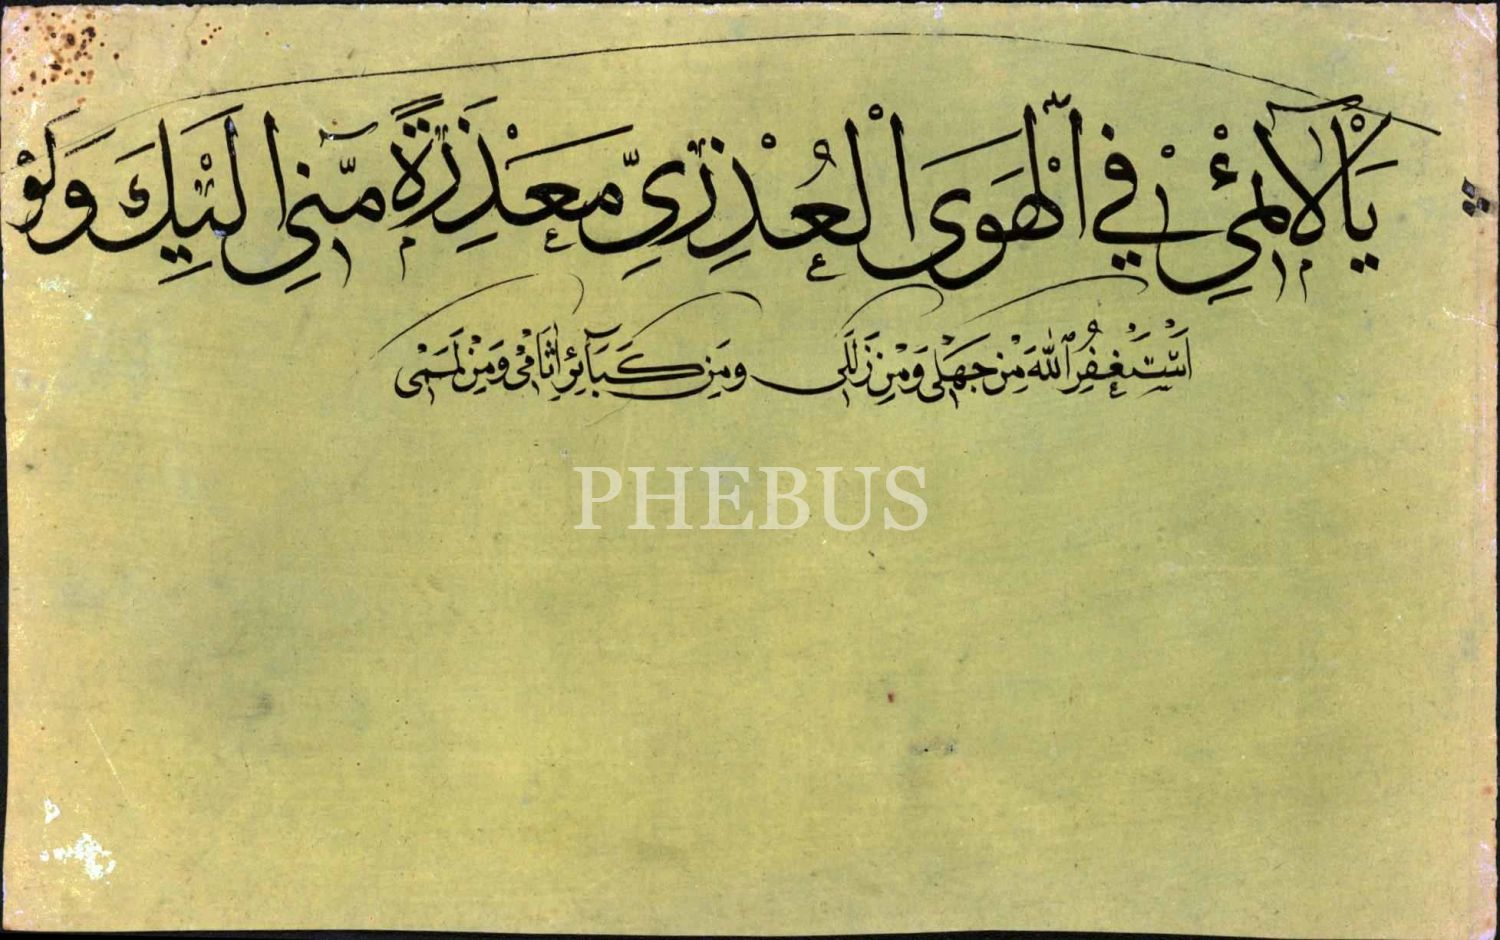 يَا لَآئِمِي فِي الْهَوَى الْعُذْرِيِّ مَعْذِرَةً مِّنِي اِلَيْكَ وَلَوْ
اَسْتَغْفِرُ اللهَ مِنْ جَهْلِي وَمِنْ زَلَلِي وَمِن كَبَآئِرِ اٰثَامِي وَمِنْ لَمَمِي
PHEBUS